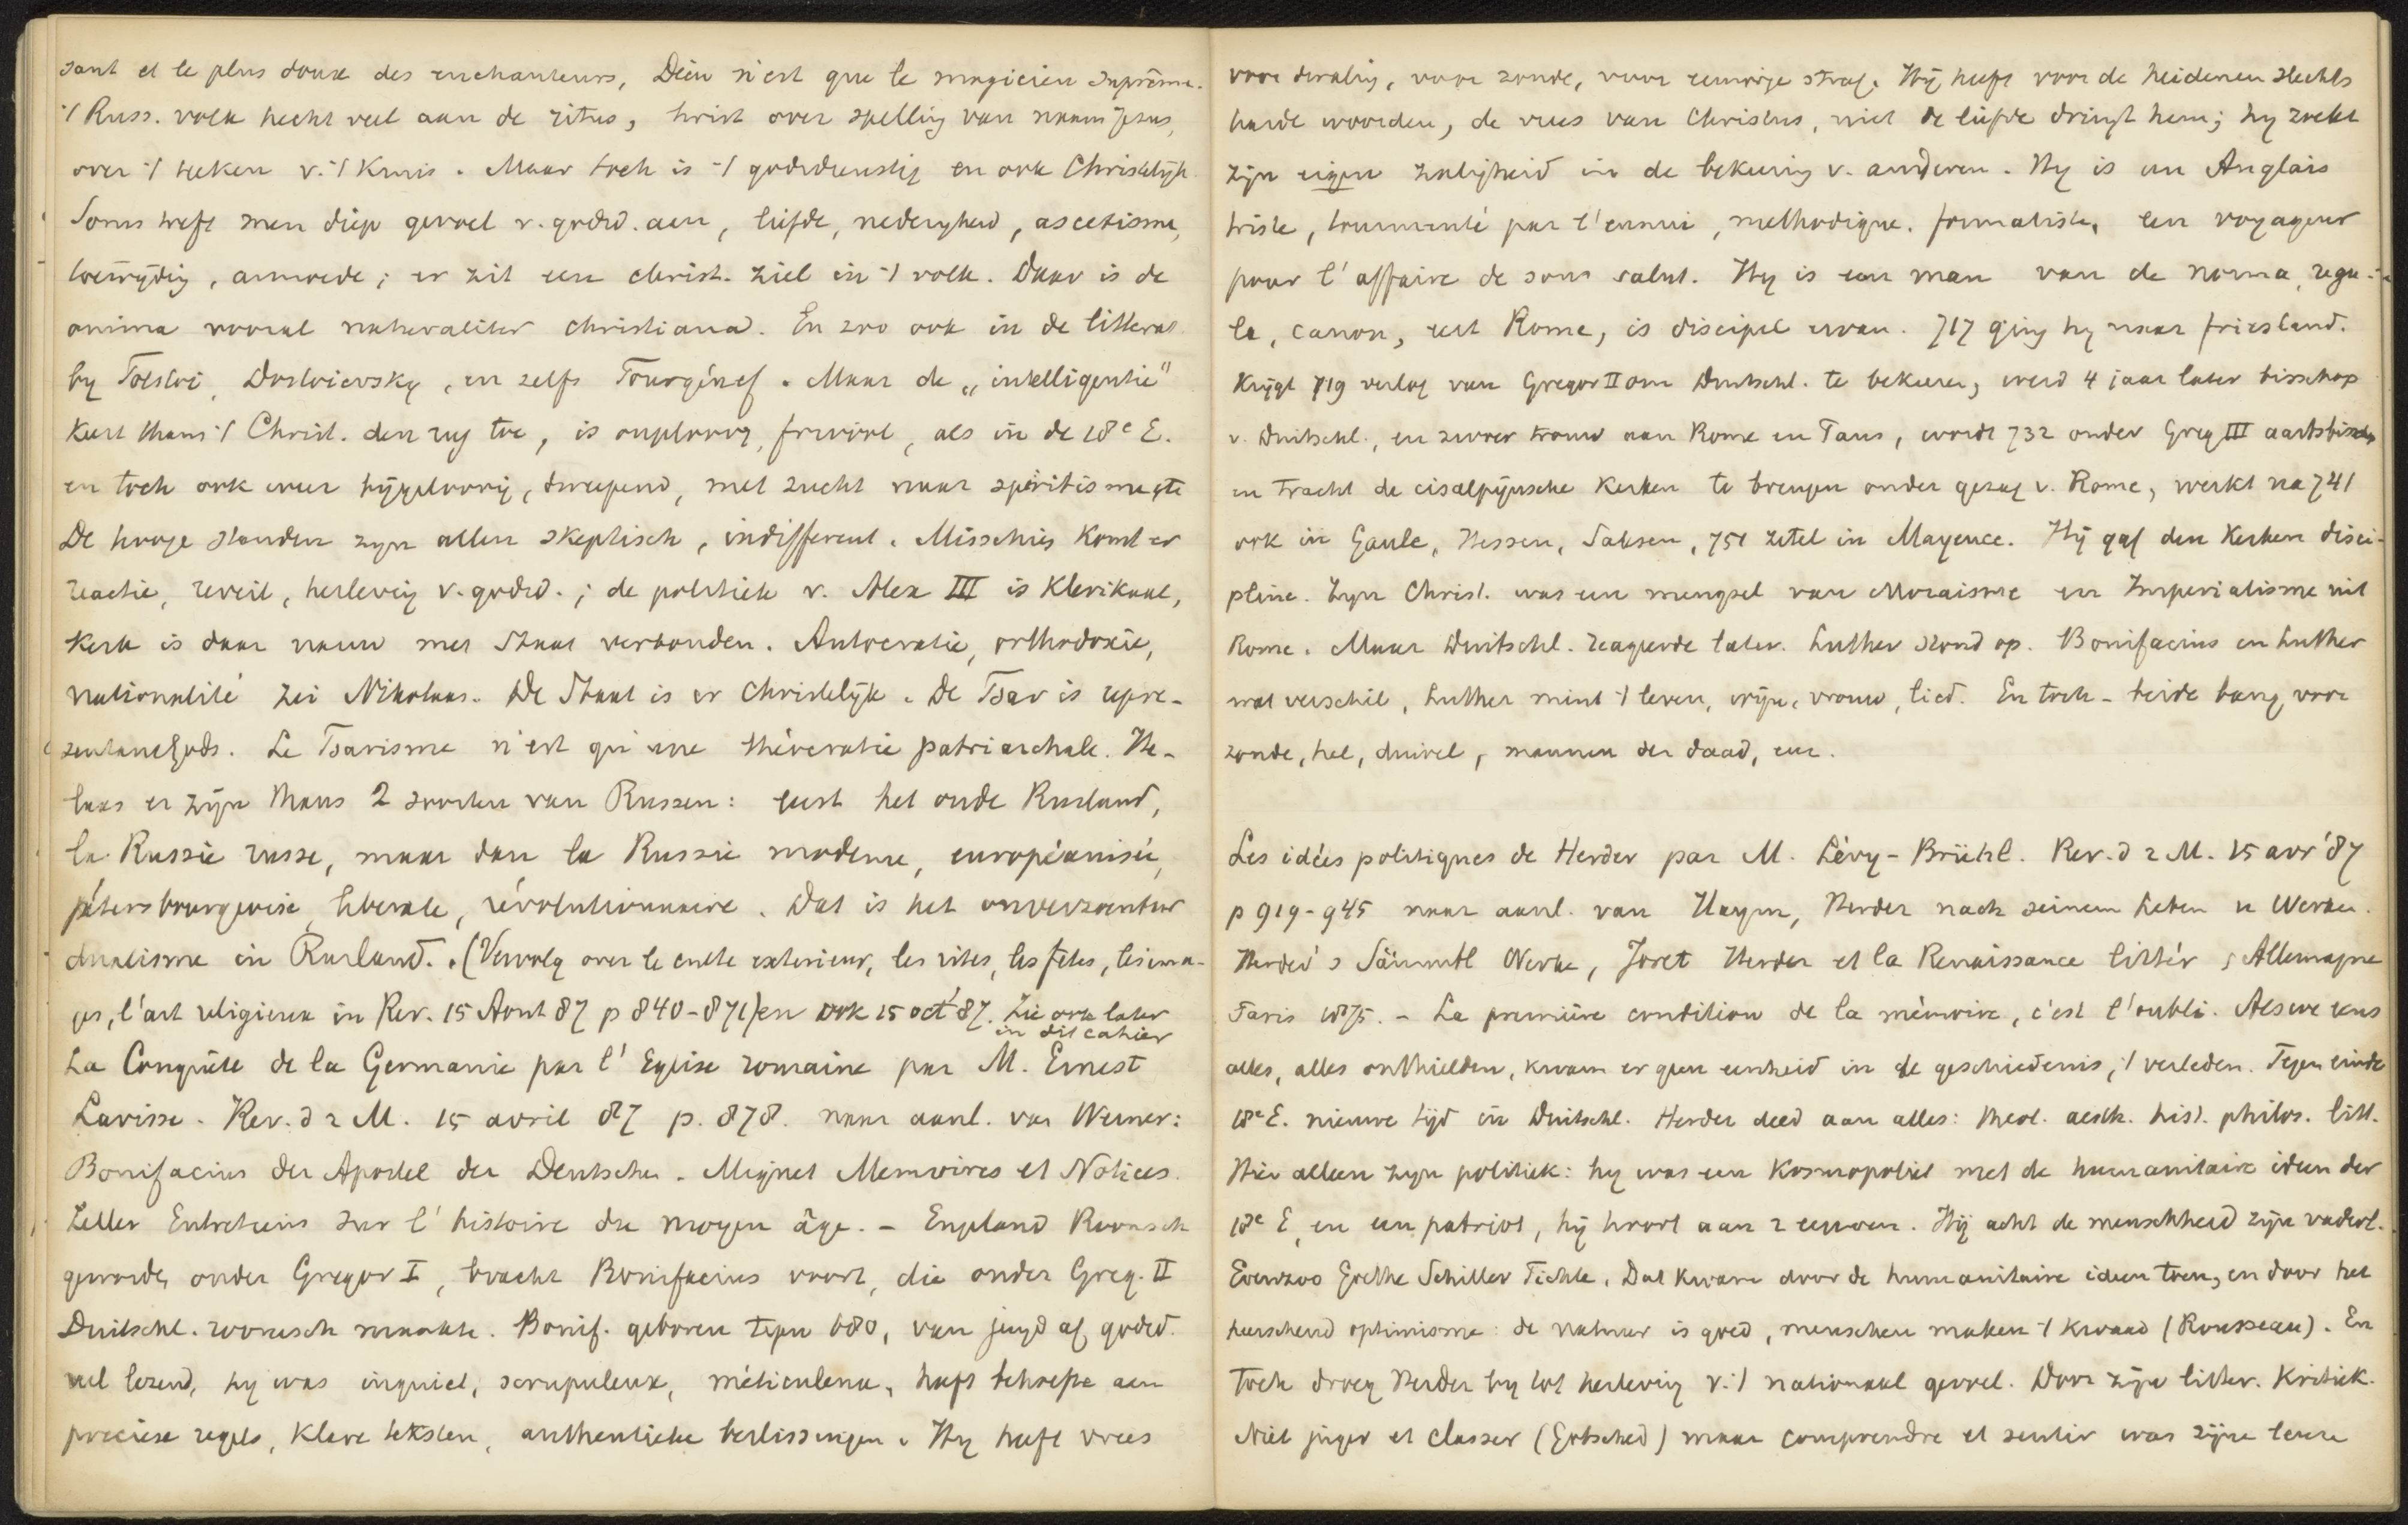 sant et le plus doux des enchanteurs, Dieu n'est que le magicien suprême.
't Russ. volk hecht veel aan de ritus, twist over spelling van naam Jesus,
over 't teeken v. 't Kruis. Maar toch is 't godsdienstig en ook Christelijk.
Soms treft men diep gevoel v. godsd. aan, liefde, nederigheid, ascetisme,
toewijding, armoede; er zit een christ. ziel in 't volk. Daar is de
anima vooral naturaliter christiana. En zoo ook in de litterat.
by Tolstoi, Dostoievsky, en zelfs Tourgénef. Maar de „intelligentie"
Keert thans 't Christ. den rug toe, is ongeloovig, frivool, als in de 18e E.
en toch ook weer bijgeloovig, dweepend, met zucht naar spiritisme etc
De hooge standen zyn allen skeptisch, indifferent. Misschien komt er
reactie, reveil, herleving v. godsd.; de politiek v. Alex III is Klerikaal,
Kerk is daar nauw met Staat verbonden. Autocratie, orthodoxie,
nationalité zei Nikolaas. De Staat is er Christelijk. De Tsar is repre-
sentant Gods. Le Tsarisme n'est qu'une théocratie patriarchale. He-
laas er zijn thans 2 soorten van Russen: eerst het oude Rusland,
la Russie russe, maar dan la Russie moderne, européanisée,
pétersbourgeoise, liberale, révolutionnaire. Dat is het onverzoenbur
dualisme in Rusland. (Vervolg over le culte exterieur, les rites, les fêtes, les ima-
ges, l'art religieux in Rev. 15 Aout 87 p 840-871) en ook 15 oct 87. Zie ook later
in dit cahier
La Conquête de la Germanie par l'Eglise romaine par M. Ernest
Lavisse. Rev. d 2 M. 15 avril 87 p. 878. naar aanl. van Werner:
Bonifacius der Apostel der Deutschen. Mignet Memoires et Notices.
Zeller Entretiens sur l'histoire du moyen âge. - Engeland Roomsch
geworden onder Gregor I, bracht Bonifacius voort, die onder Greg. II
Duitschl. roomsch maakte. Bonif. geboren tegen 680, van jeugd af godsd.
veel lezend, hy was inquiet, scrupuleux, méticuleux, heeft behoefte aan
preciese regels, klare teksten, authentieke beslissingen. Hy heeft vrees
voor dwaling, voor zonde, voor eeuwige straf. Hij heeft voor de heidenen slechts
harde woorden, de vrees van Christus, niet de liefde dringt hem; hy zoekt
zijn eigen zaligheid in de bekeering v. anderen. Hy is een Anglais
triste, tourmenté par l'ennui, methodique, formaliste, een voyageur
pour l'affaire de sons salut. Hy is een man van de norma, regu-
la, canon, eert Rome, is discipel ervan. 717 ging hy naar friesland.
Krijgt 719 verlof van Gregor II om Duitschl. te bekeeren, werd 4 jaar later bisschop
v. Duitschl., en zwoer trouw aan Rome en Paus, wordt 732 onder Greg III aartsbissch
en tracht de cisalpijnsche Kerken te brengen onder gezag v. Rome, werkt na 741
ook in Gaule, Hessen, Saksen, 751 zetel in Mayence. Hij gaf den Kerken disci-
pline. Zyn Christ. was een mengsel van Mozaisme en Imperialisme uit
Rome. Maar Duitschl. reageerde later. Luther stond op. Bonifacius en Luther
wat verschil, Luther mint 't leven, wijn, vrouw, lied. En toch - beide bang voor
zonde, hel, duivel, mannen der daad, enz.
Les idées politiques de Herder par M. Lévy-Brühl. Rev. d 2 M. 15 avr '87
p 919-945 naar aanl. van Haym, Herder nach seinem Leben u Werken.
Herder's Sämmtl Werke, Joret Herder et la Renaissance littér, Allemagne
Paris 1875. - La première condition de la mémoire, c'est l'oubli. Als we eens
alles, alles onthielden, kwam er geen eenheid in de geschiedenis, 't verleden. Tegen einde
18e E. nieuwe tijd in Duitschl. Herder deed aan alles: theol. aesth. hist. philos. litt.
Hier alleen zyn politiek: hy was een Kosmopoliet met de humanitaire ideen der
18e E, en een patriot, hij hoort aan 2 eeuwen. Hij acht de menschheid zijn vaderl.
Evenzoo Goethe Schiller Fichte. Dat kwam door de humanitaire ideen toen, en door het
heerschend optimisme: de natuur is goed, menschen maken 't kwaad (Rousseau). En
toch droeg Herder by tot herleving v. 't nationaal gevoel. Door zijn litter. Kritiek.
Niet juger et classer (Gottsched) maar comprendre et sentir was zijne leuze